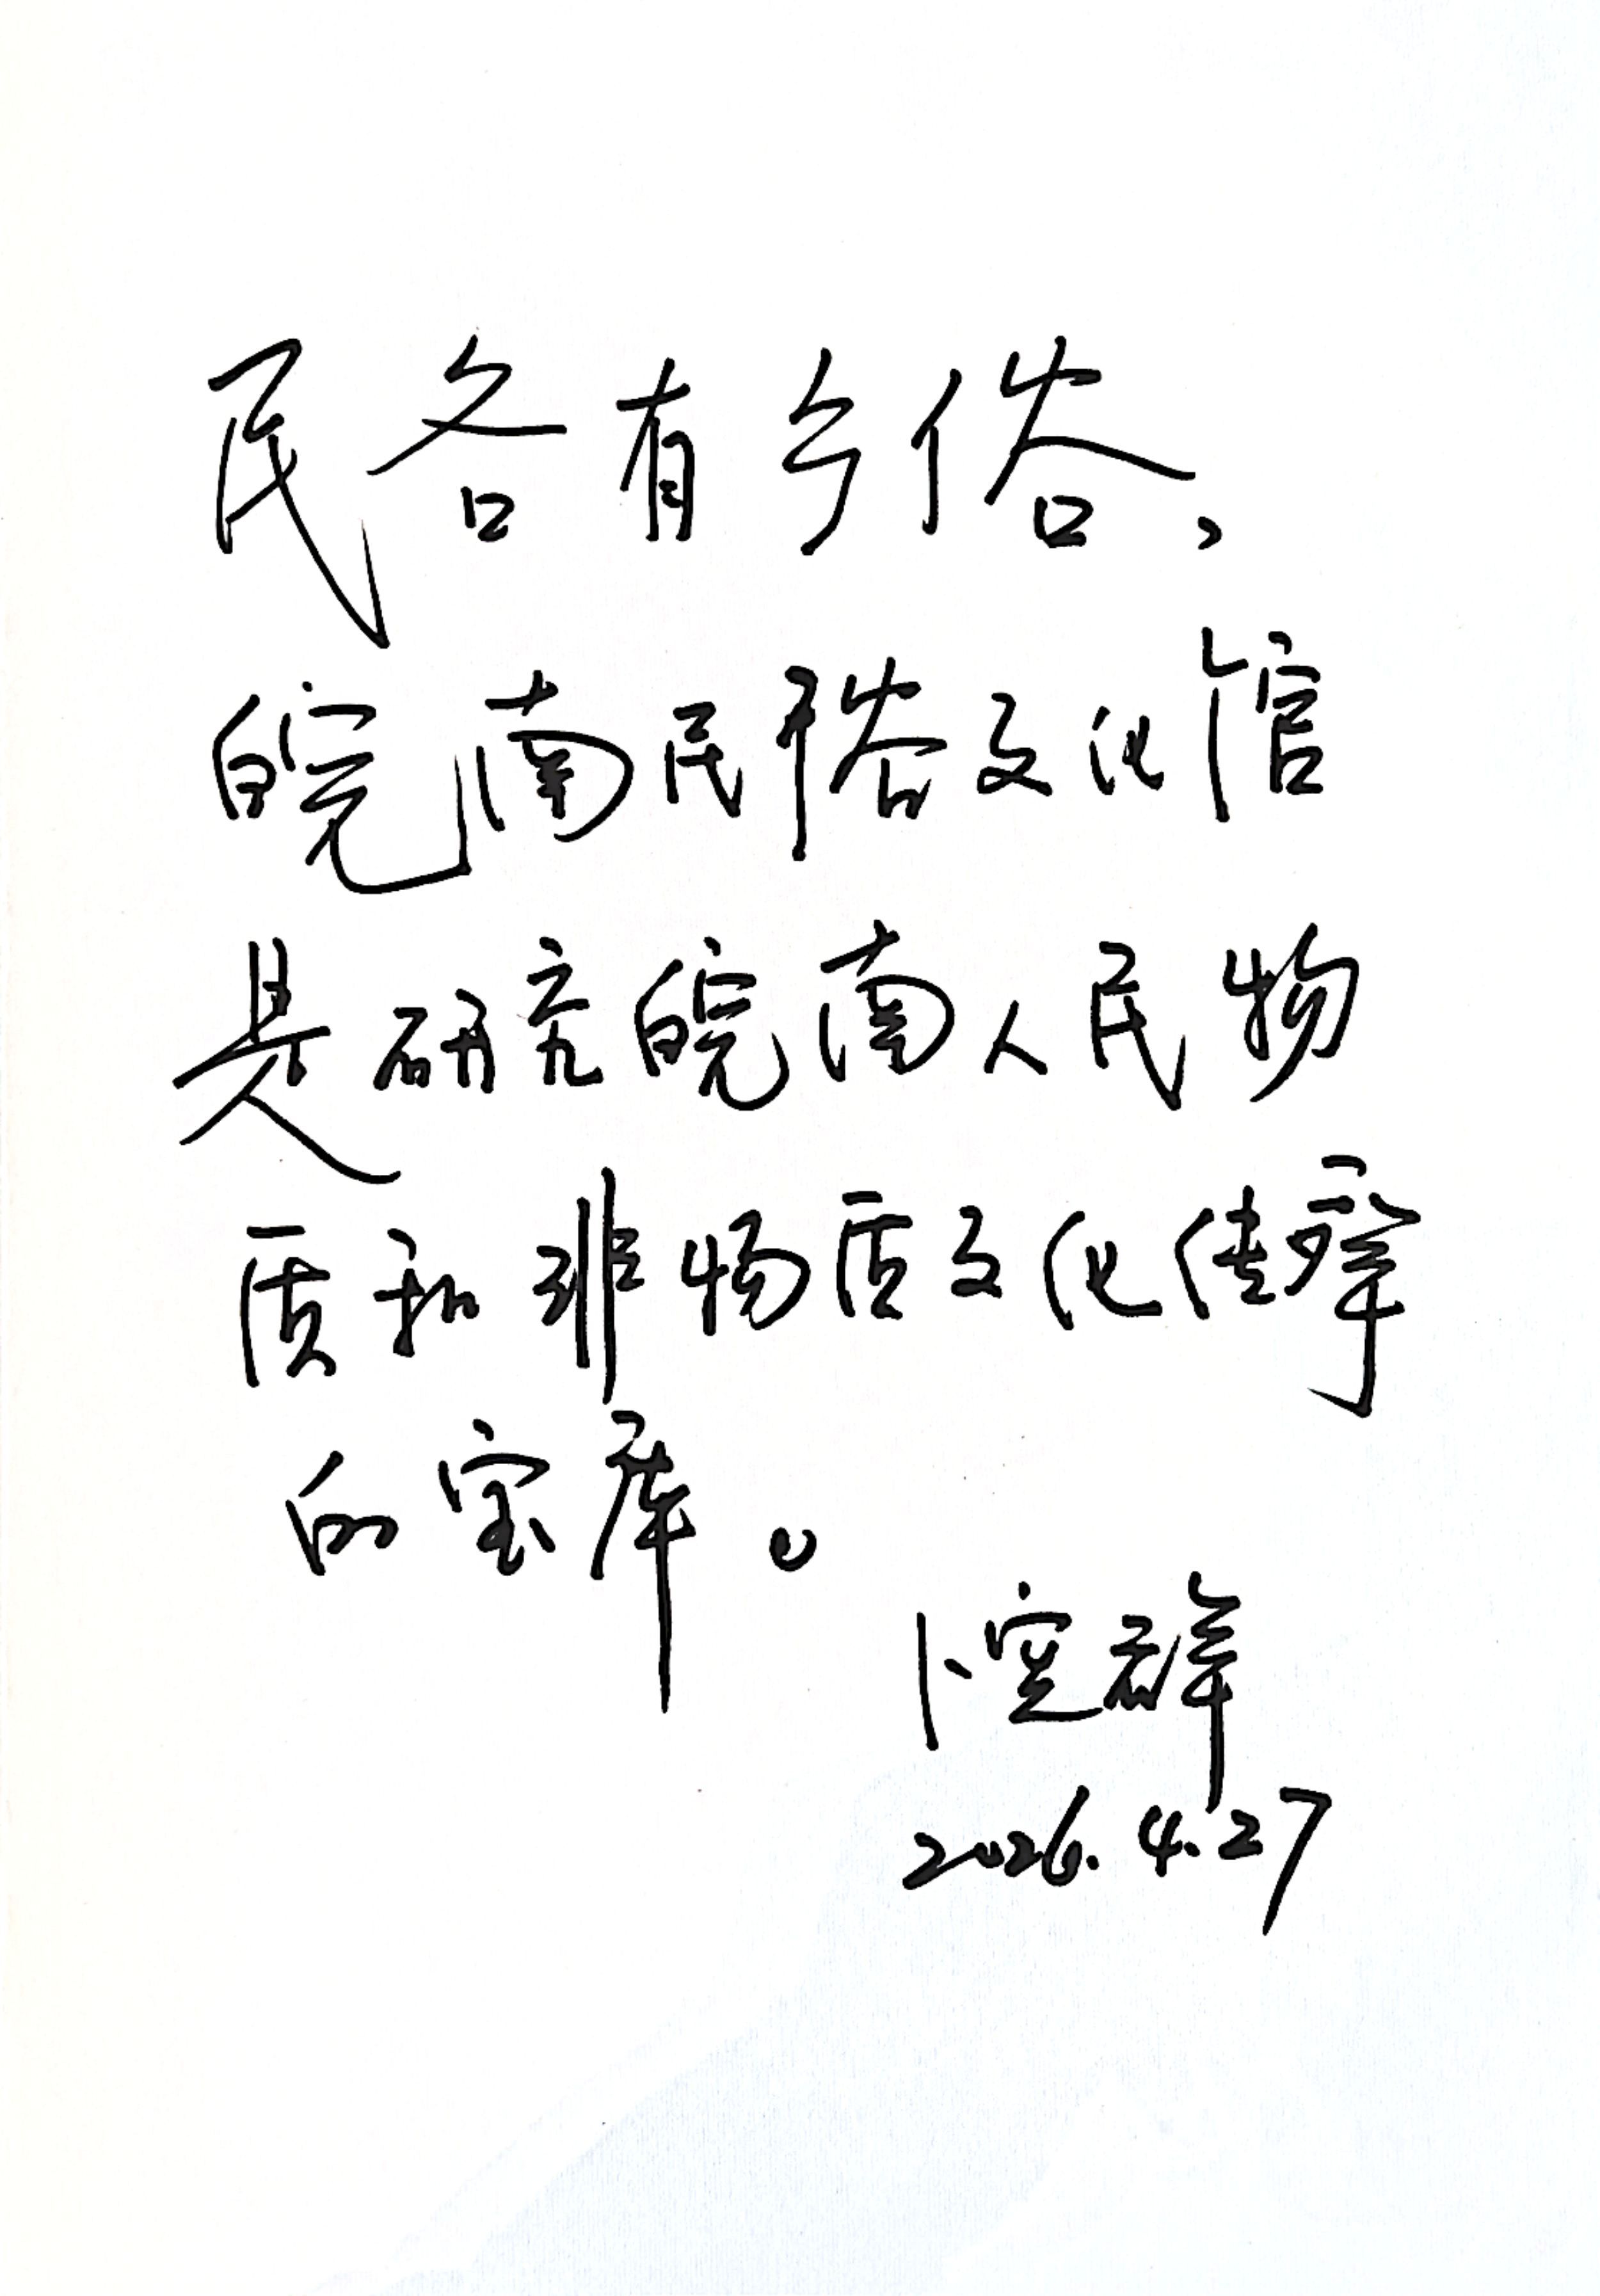 民各有乡俗,
皖南民俗文化馆
是研究皖南人民物
质和非物质文化传承
的宝库。
卜宪群
2026.4.27